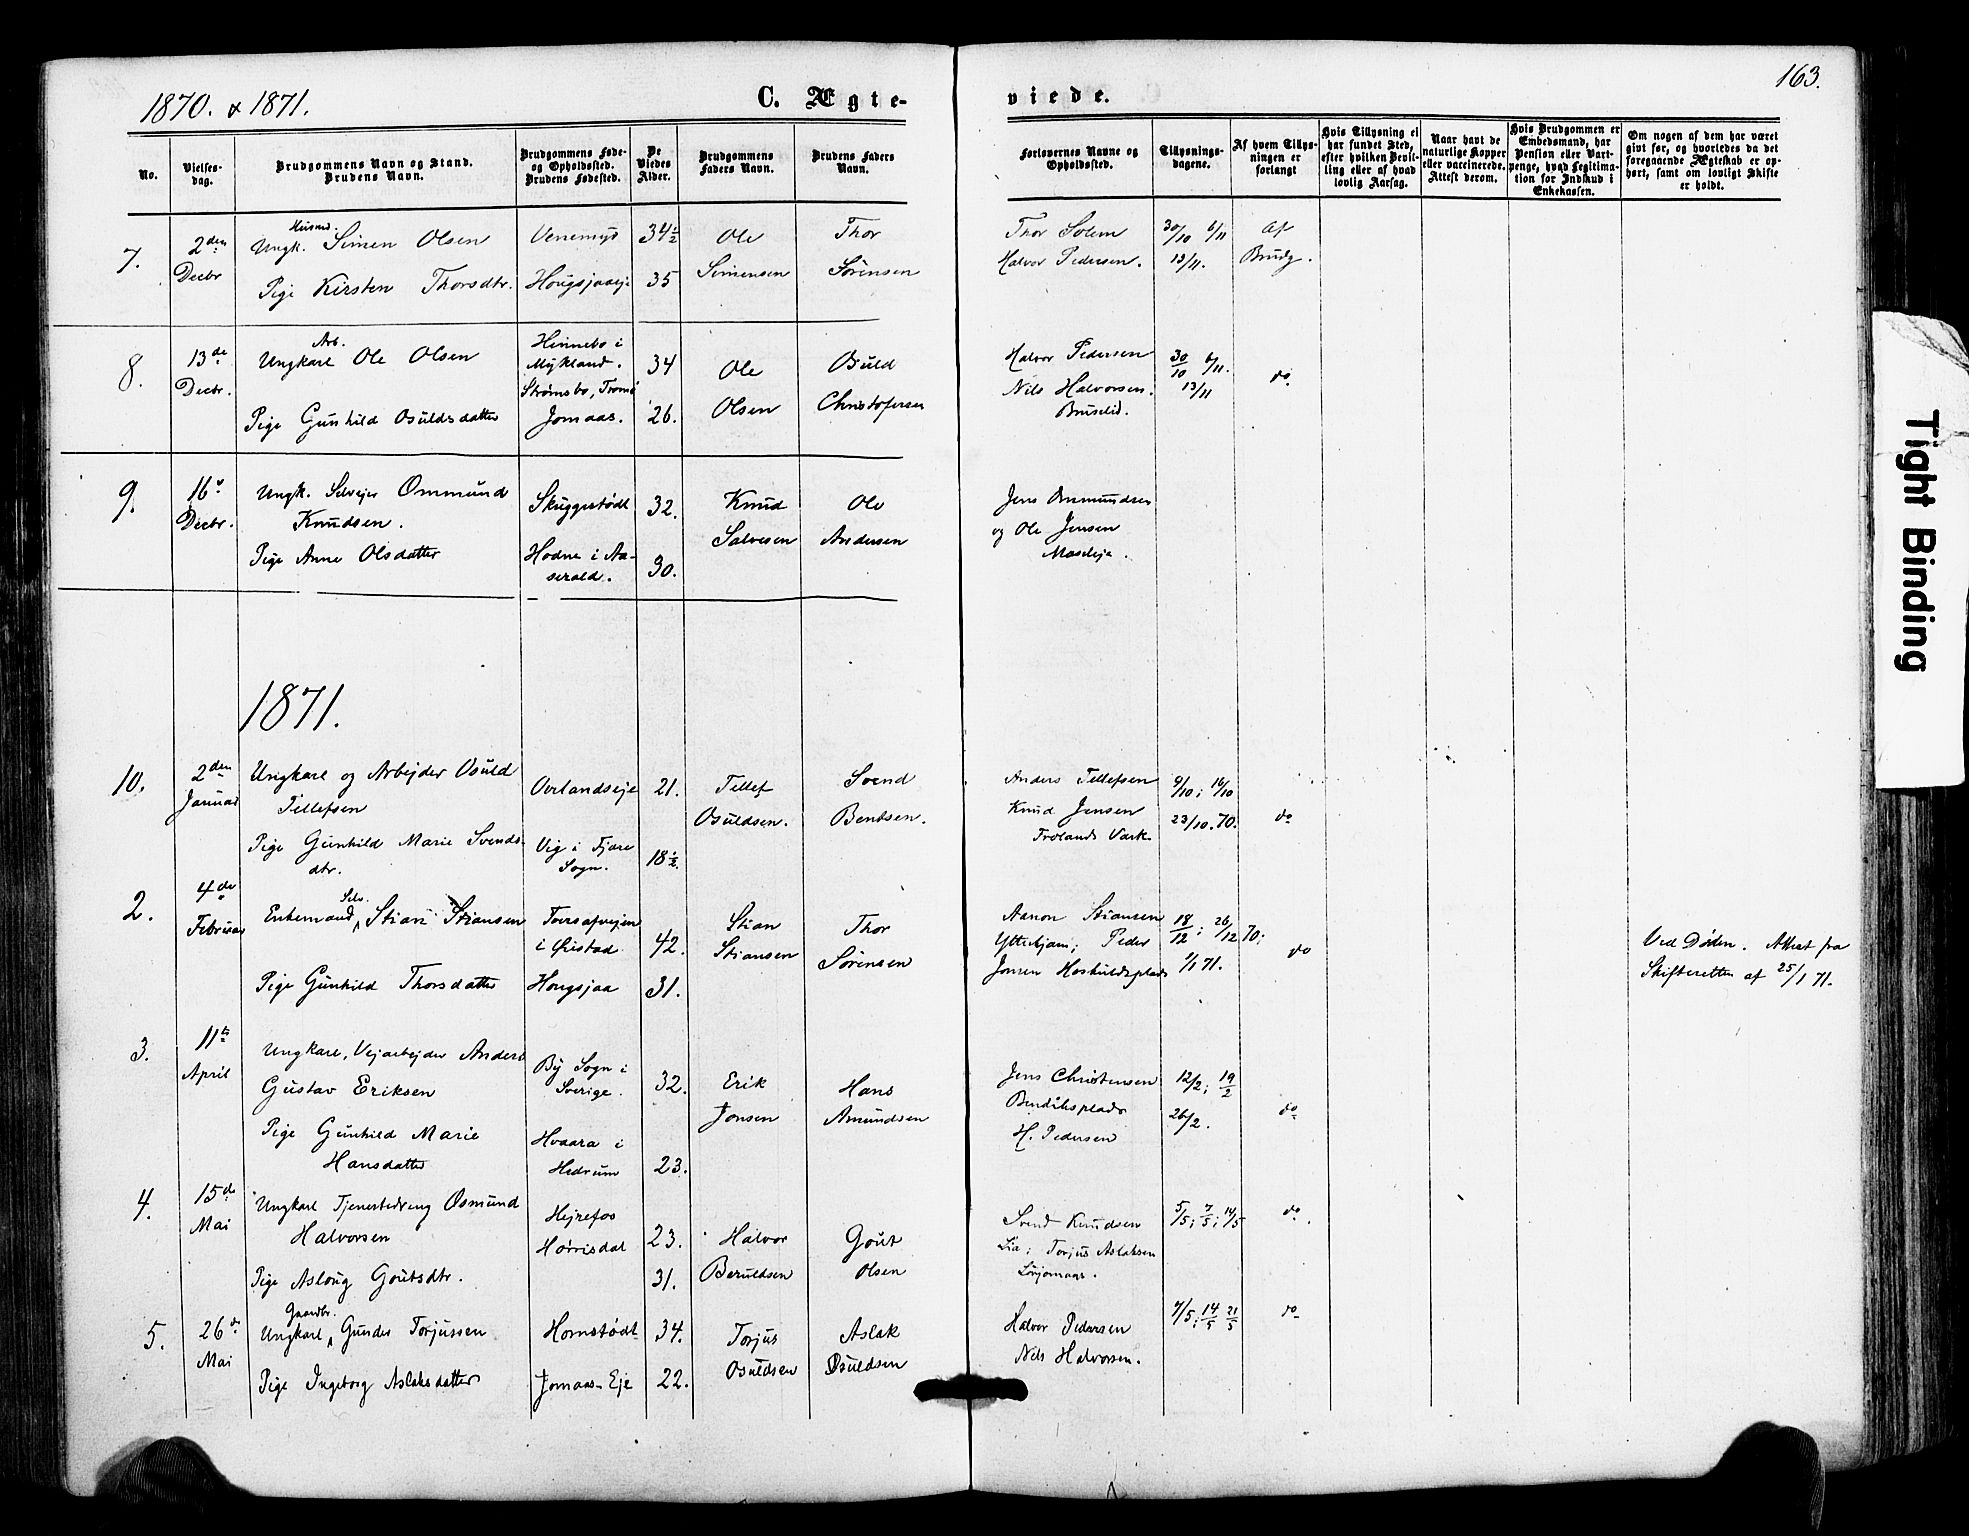 163.
1870. & 1871.
C. Ægte-
viede.
No.
Vielses-
dag.
Brudgommens Navn og Stand.
Brudens Navn.
Brudgommens Føde-
og Opholdssted.
Brudens Fødested.
De
Viedes
Alder.
Brudgommens
Faders Navn.
Brudens Faders
Navn.
Forlovernes Navne og
Opholdssted.
Tillysnings-
dagene.
Af hvem Tillys-
ningen er
forlangt
Hvis Tillysning ei
har fundet Sted,
efter hvilken Bevil-
ling eller af hvad
lovlig Aarsag.
Naar havt de
naturlige Kopper
eller vaccinerede.
Attest derom.
Hvis Brudgommen er
Embedsmand, har
Pension eller Vart-
penge, hvad Legitima-
tion for Indskud i
Enkekassen.
Om nogen af dem har været
givt før, og hvorledes da det
foregaaende Ægteskab er op-
hørt, samt om lovligt Skifte
er holdt.
7.
2den
Decbr
Husmd.
Ungk. Simen Olsen
Pige Kirsten Thorsdtr.
Venemyr
Hougsjaaeje
34½
35
Ole
Simensen
Thor
Sørensen
Thor Solem
Halvor Pedersen.
30/10 6/11
13/11.
Af
Brudg.
8.
13de
Decbr.
Arb.
Ungkarl Ole Olsen
Pige Gunhild Osuldsdatter
Hinnebo i
Mykland.
Strømsbo, Tromø
Jomaas.
34
26.
Ole
Olsen
Osuld
Christofersen
Halvor Pedersen
Nils Halvorsen.
Buselid.
30/10 6/11.
13/11
do
9.
16de
Decbr.
Ungk. Selvejer Ommund
Knudsen.
Pige Anne Olsdatter
Skuggestødt
Hodne i Aa-
serald.
32.
30.
Knud
Salvesen
Ole
Andersen
Jens Ommundsen
og Ole Jensen
Moseleja.
1871.
10.
2den
Januar
Ungkarl og Arbejder Osuld
Tellefsen
Pige Gunhild Marie Svends-
dtr.
Overlandseje
Vig i Fjære
Sogn.
21.
18½.
Tellef
Osuldsen.
Svend
Bentsen.
Anders Tellefsen
Knud Jensen
Frolands Værk
9/10; 16/10
23/10.70.
do
2.
4de
Februar
Selv.
Enkemand, Stian Stiansen
Pige Gunhild Thorsdatter
i Øiestad
Hougsjaa
42.
31.
Stian
Stiansen
Thor
Sørensen
Aanon Stiansen
Peder
Jonsen Hoskuldsplads
18/12; 26/12 70;
1/1 71.
do
Ved Døden. Attest fra
Skifteretten af 25/1 71.
3.
11te
April
Ungkarl, Vejarbejder Anders
Gustav Eriksen
Pige Gunhild Marie
Hansdatter
By Sogn i
Sverige.
Hvaara i
Hedrum
32.
23.
Erik
Jonsen
Hans
Amundsen
Jens Christensen
Bendiksplads
H. Pedersen
12/2; 19/2
26/2.
do
4.
15de
Mai
Ungkarl Tjenestedreng Osmund
Halvorsen
Pige Asloug Goutsdtr.
Hejrefos
Hørrisdal
23.
31.
Halvor
Beruldsen
Gout
Olsen
Svend Knudsen
Lia; Torjus Aslaksen
5/5; 7/5; 14/5
do.
5.
26de
Mai
Gaardbr.
Ungkarl, Gunder Torjussen
Pige Ingeborg Aslaksdatter
Hornstødt
Jomaas-Eje
34.
22.
Torjus
Osuldsen
Aslak
Osuldsen
Halvor Pedersen
Nils Halvorsen.
7/5; 14/5 21/5
do
Tight Binding